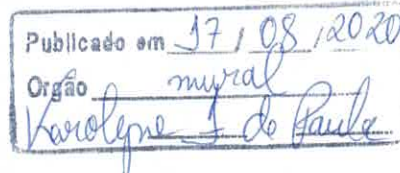 Publicado em 17 / 08 / 2020
Orgão mural
Karolyne J de Paula